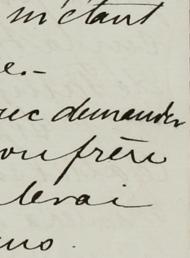 m'étant
e.-
uec demander
on frère
lerai